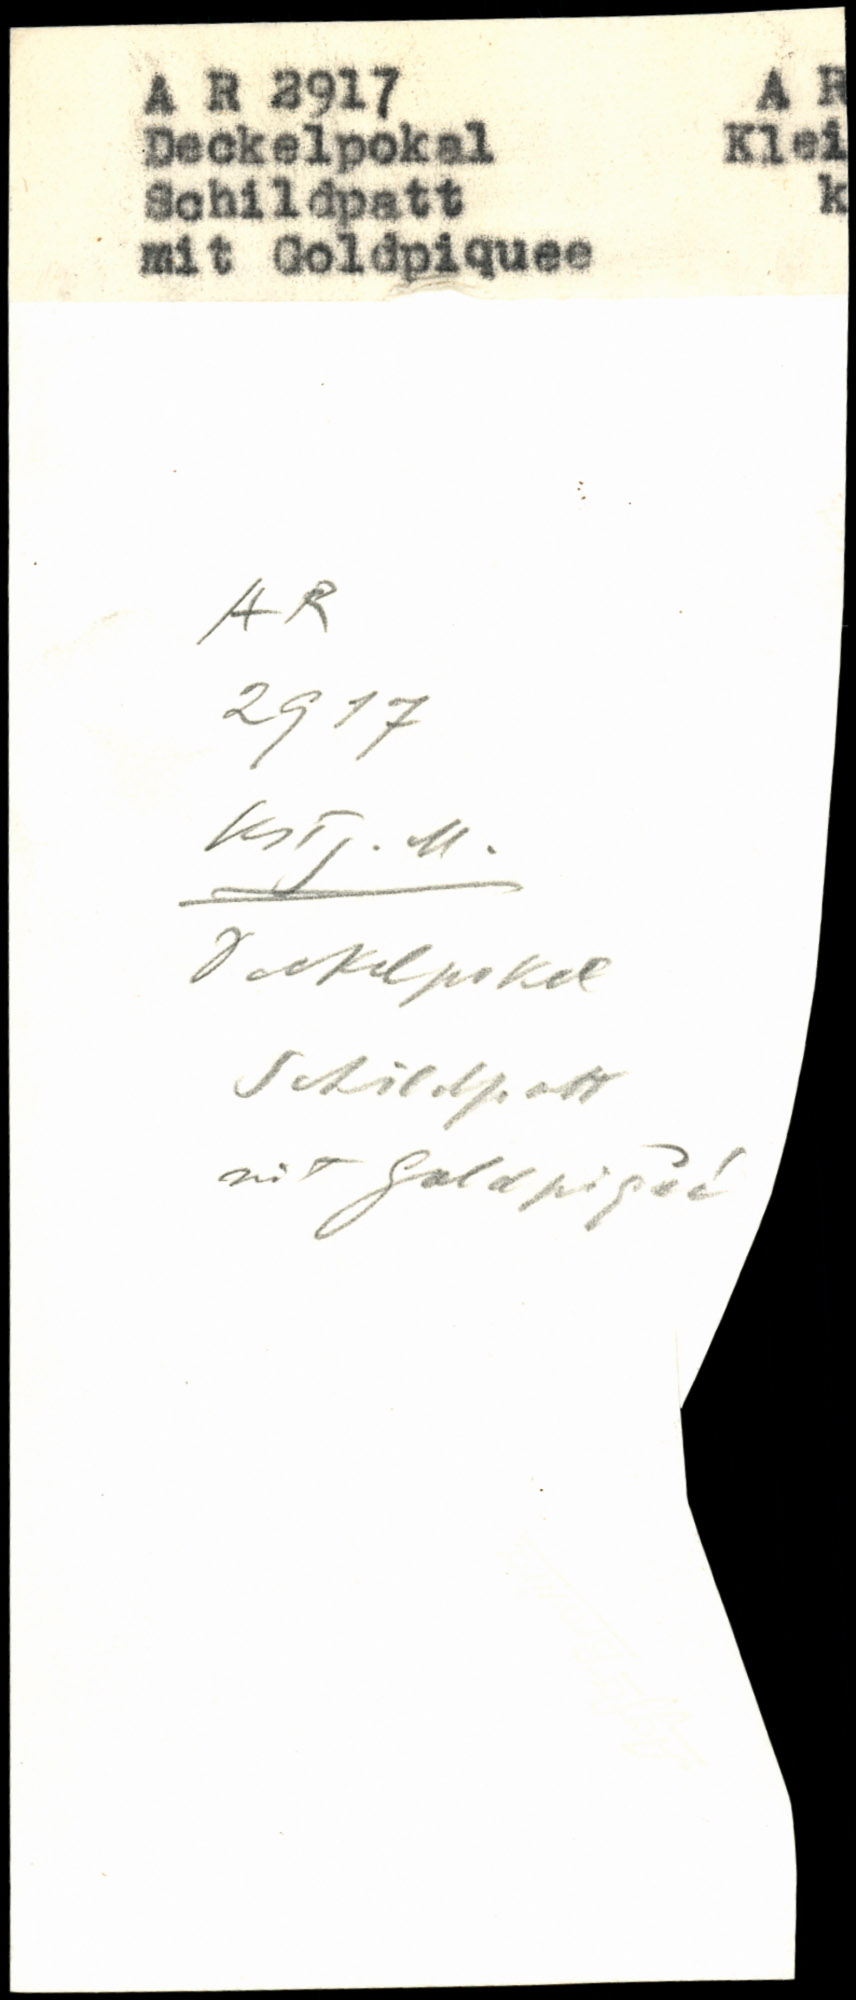 A R 2917
Deckelpokal
Schildpatt
mit Goldpiquee
A R
Klei
k
AR
2917
Kstg. M.
Deckelpokal
Schildpatt
mit Goldpiqué